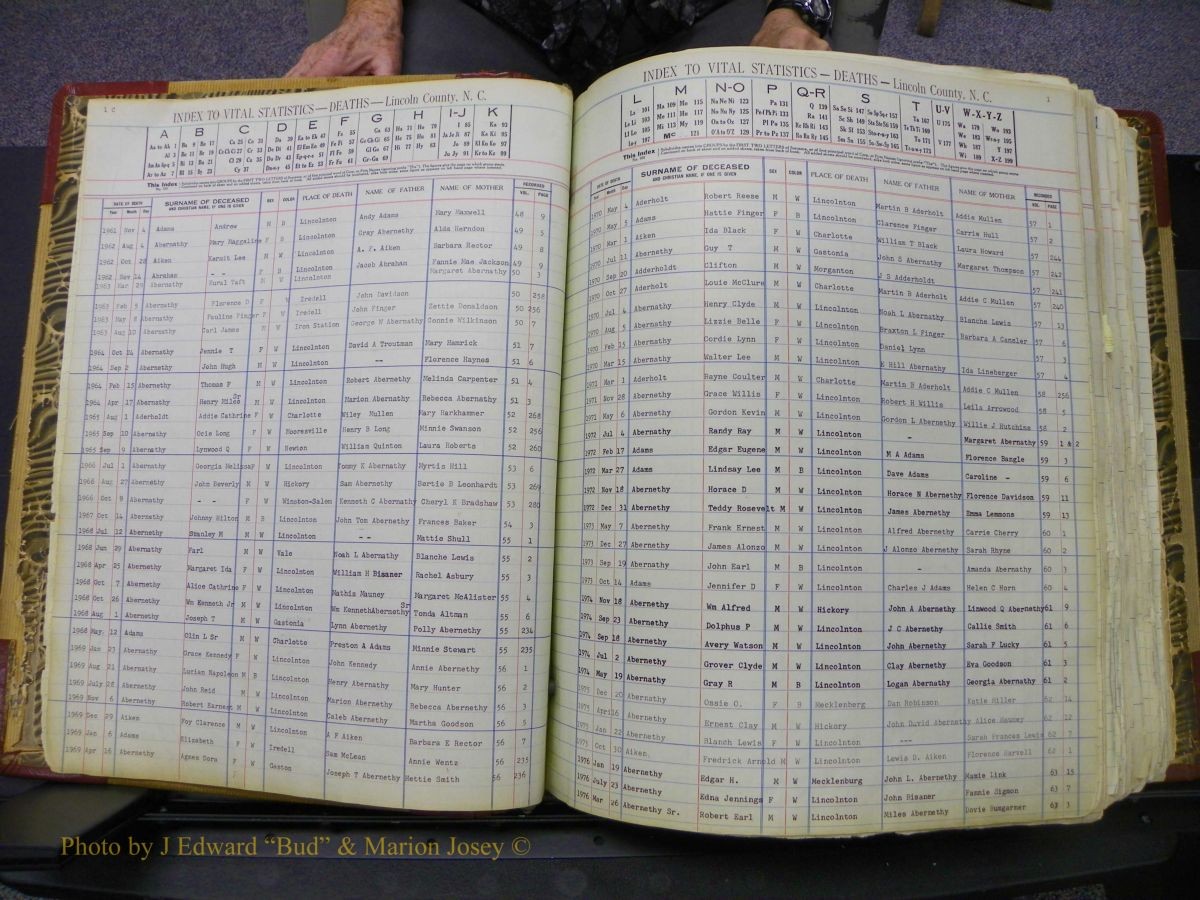 1 c
INDEX TO VITAL STATISTICS — DEATHS — Lincoln County, N. C.
A B C D E F G H I-J K
DATE OF DEATH SURNAME OF DECEASED SEX COLOR PLACE OF DEATH NAME OF FATHER NAME OF MOTHER RECORDED
Year Month Day AND CHRISTIAN NAME, IF ONE IS GIVEN VOL. PAGE
1961 Nov 4 Adams Andrew M B Lincolnton Andy Adams Mary Maxwell 48 9
1962 Aug 4 Abernathy Mary Maggaline F B Lincolnton Gray Abernathy Alda Herndon 49 5
1962 Oct 28 Aiken Kermit Lee M W Lincolnton A. F. Aiken Barbara Rector 49 8
1962 Nov 14 Abraham - - F B Lincolnton Jacob Abraham Fannie Mae Jackson 49 9
1963 Mar 29 Abernathy Rural Taft M W Lincolnton Margaret Abernathy 50 3
1963 Feb 5 Abernathy Florence D F W Iredell John Davidson 50 258
1963 May 8 Abernathy Pauline Finger F Iredell John Finger Zettie Donaldson 50 256
1963 Aug 10 Abernathy Carl James M W Iron Station George W Abernathy Connie Wilkinson 50 7
1964 Oct 14 Abernathy Jennie T F W Lincolnton David A Troutman Mary Hamrick 51 7
1964 Sep 2 Abernathy John Hugh M W Lincolnton -- Florence Haynes 51 6
1964 Feb 15 Abernathy Thomas F M W Lincolnton Robert Abernethy Melinda Carpenter 51 4
1964 Apr 17 Abernathy Henry Miles Sr M W Lincolnton Marion Abernathy Rebecca Abernathy 51 3
1965 Aug 1 Aderholdt Addie Cathrine F W Charlotte Wiley Mullen Mary Harkhammer 52 268
1965 Sep 10 Abernathy Ocie Long F W Mooresville Henry B Long Minnie Swanson 52 256
1965 Sep 9 Abernathy Lynwood Q F W Newton William Quinton Laura Roberts 52 260
1966 Jul 1 Abernethy Georgia Melissa F W Lincolnton Tommy K Abernethy Myrtis Hill 53 6
1966 Aug 27 Abernethy John Beverly M W Hickory Sam Abernethy Bertie B Leonhardt 53 269
1966 Oct 9 Abernathy - - F W Winston-Salem Kenneth C Abernathy Cheryl K Bradshaw 53 280
1967 Oct 14 Abernathy Johnny Hilton M B Lincolnton John Tom Abernathy Frances Baker 54 3
1968 Jul 12 Abernathy Stanley M M W Lincolnton -- Mattie Shull 55 1
1968 Jun 29 Abernethy Farl M W Vale Noah L Abernathy Blanche Lewis 55 2
1968 Apr 25 Abernathy Margaret Ida F W Lincolnton William H Bisaner Rachel Asbury 55 3
1968 Oct 7 Abernathy Alice Cathrine F W Lincolnton Mathis Mauney Margaret McAlister 55 4
1968 Oct 26 Abernethy Wm Kenneth Jr M W Lincolnton Wm Kenneth Abernethy Sr Tonda Altman 55 6
1968 Aug 1 Abernethy Joseph T M W Gastonia Lynn Abernethy Polly Abernethy 55 234
1968 May 12 Adams Olin L Sr M W Charlotte Preston A Adams Minnie Stewart 55 235
1969 Jan 23 Abernethy Grace Kennedy F W Lincolnton John Kennedy Annie Abernethy 56 1
1969 Aug 21 Abernethy Lurian Napoleon M B Lincolnton Henry Abernathy Mary Hunter 56 2
1969 July 28 Abernethy John Reid M W Lincolnton Marion Abernethy Rebecca Abernethy 56 3
1969 Nov 6 Abernethy Robert Earnest M W Lincolnton Caleb Abernethy Martha Goodson 56 5
1969 Dec 29 Aiken Foy Clarence M W Lincolnton A F Aiken Barbara E Rector 56 7
1969 Jan 6 Adams Elizabeth F W Iredell Sam McLean Annie Wentz 56 235
1969 Apr 16 Abernethy Agnes Dora F W Gaston Joseph T Abernethy Hettie Smith 56 236
INDEX TO VITAL STATISTICS — DEATHS — Lincoln County, N. C. 1
L M N-O P Q-R S T U-V W-X-Y-Z
DATE OF DEATH SURNAME OF DECEASED SEX COLOR PLACE OF DEATH NAME OF FATHER NAME OF MOTHER RECORDED
Year Month Day AND CHRISTIAN NAME, IF ONE IS GIVEN VOL. PAGE
1970 May 4 Aderholt Robert Reese M W Lincolnton Martin B Aderholt Addie Mullen 57 1
1970 May 5 Adams Hattie Finger F B Lincolnton Clarence Finger Carrie Hull 57 2
1970 Mar 1 Aiken Ida Black F W Charlotte William T Black Laura Howard 57 244
1970 Jul 11 Abernethy Guy T M W Gastonia John S Abernethy Margaret Thompson 57 242
1970 Sep 20 Adderholdt Clifton M W Morganton J S Adderholdt 57 241
1970 Oct 27 Aderholt Louie McClure M W Charlotte Martin B Aderholt Addie C Mullen 57 240
1970 Jul 4 Abernethy Henry Clyde M W Lincolnton Noah L Abernathy Blanche Lewis 57 13
1970 Aug 5 Abernethy Lizzie Belle F W Lincolnton Braxton L Finger Barbara A Cansler 57 6
1970 Feb 15 Abernethy Cordie Lynn F W Lincolnton Daniel Lynn 57 3
1970 Mar 15 Abernethy Walter Lee M W Lincolnton E Hill Abernathy Ida Lineberger 57 4
1971 Mar 1 Aderholt Rayne Coulter M W Charlotte Martin B Aderholt Addie C Mullen 58 256
1971 Nov 28 Abernethy Grace Willis F W Lincolnton Robert H Willis Leila Arrowood 58 5
1971 May 6 Abernethy Gordon Kevin M W Lincolnton Gordon L Abernethy Willie J Hutchins 58 2
1972 Jul 4 Abernathy Randy Ray M W Lincolnton - Margaret Abernathy 59 1 & 2
1972 Feb 17 Adams Edgar Eugene M W Lincolnton M A Adams Florence Bangle 59 3
1972 Mar 27 Adams Lindsay Lee M B Lincolnton Dave Adams Caroline - 59 6
1972 Nov 18 Abernethy Horace D M W Lincolnton Horace N Abernethy Florence Davidson 59 11
1972 Dec 31 Abernethy Teddy Rosevelt M W Lincolnton James Abernathy Emma Lemmons 59 13
1973 May 7 Abernethy Frank Ernest M W Lincolnton Alfred Abernethy Carrie Cherry 60 1
1973 Dec 27 Abernethy James Alonzo M W Lincolnton J Alonzo Abernethy Sarah Rhyne 60 2
1973 Sep 19 Abernathy John Earl M B Lincolnton - Amanda Abernathy 60 3
1973 Oct 14 Adams Jennifer D F W Lincolnton Charles J Adams Helen C Horn 60 4
1974 Nov 18 Abernethy Wm Alfred M W Hickory John A Abernethy Linwood Q Abernethy 61 9
1974 Sep 23 Abernethy Dolphus P M W Lincolnton J C Abernethy Callie Smith 61 6
1974 Sep 18 Abernethy Avery Watson M W Lincolnton John Abernethy Sarah F Lucky 61 5
1974 Jul 2 Abernethy Grover Clyde M W Lincolnton Clay Abernethy Eva Goodson 61 3
1974 May 19 Abernethy Gray R M B Lincolnton Logan Abernethy Georgia Abernethy 61 2
1975 Dec 20 Abernathy Ossie O. F B Mecklenberg Dan Robinson Katie Miller 62 14
1975 April 6 Abernathy Ernest Clay M W Hickory John David Abernathy Alice Mauney 62 12
1975 Jan 22 Abernathy Blanch Lewis F W Lincolnton --- Sarah Frances Lewis 62 7
1975 Oct 30 Aiken Fredrick Arnold M W Lincolnton Lewis D. Aiken Florence Harvell 62 1
1976 Jan 19 Abernethy Edgar H. M W Mecklenburg John L. Abernethy Mamie Link 63 15
1976 July 23 Abernethy Edna Jennings F W Lincolnton John Bisaner Fannie Sigmon 63 7
1976 Mar 26 Abernethy Sr. Robert Earl M W Lincolnton Miles Abernethy Dovie Bumgarner 63 3
Photo by J Edward “Bud” & Marion Josey ©